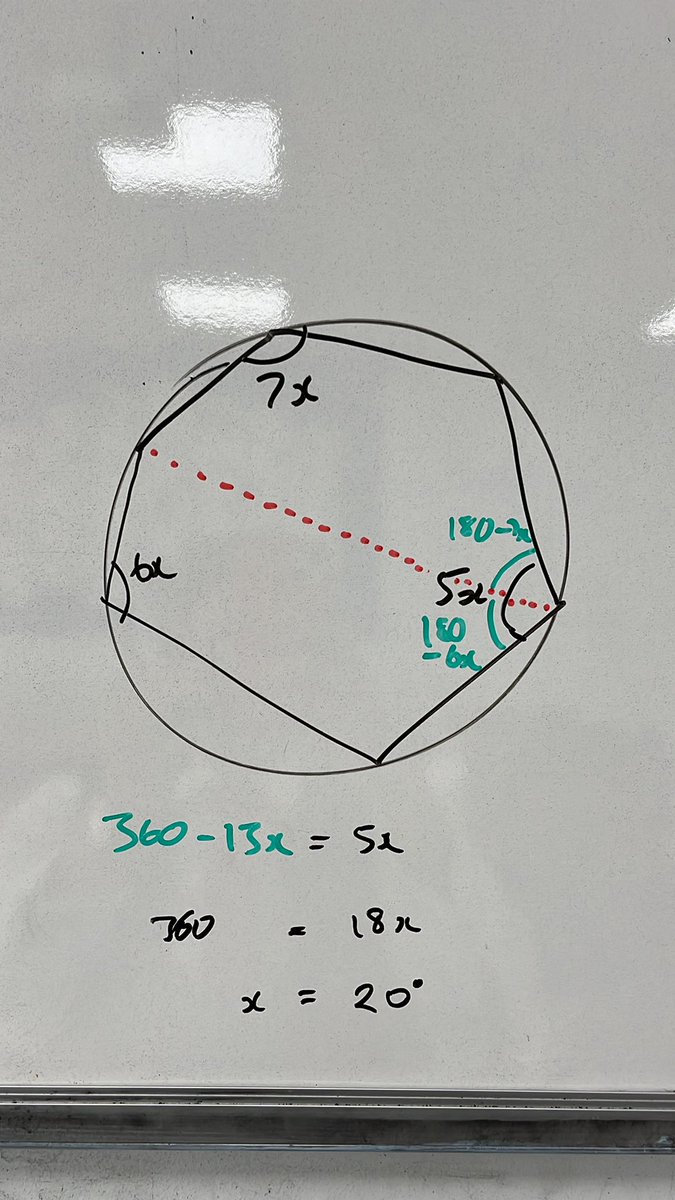 7x
180-7x
6x
5x
180
-6x
360-13x = 5x
360 = 18x
x = 20°